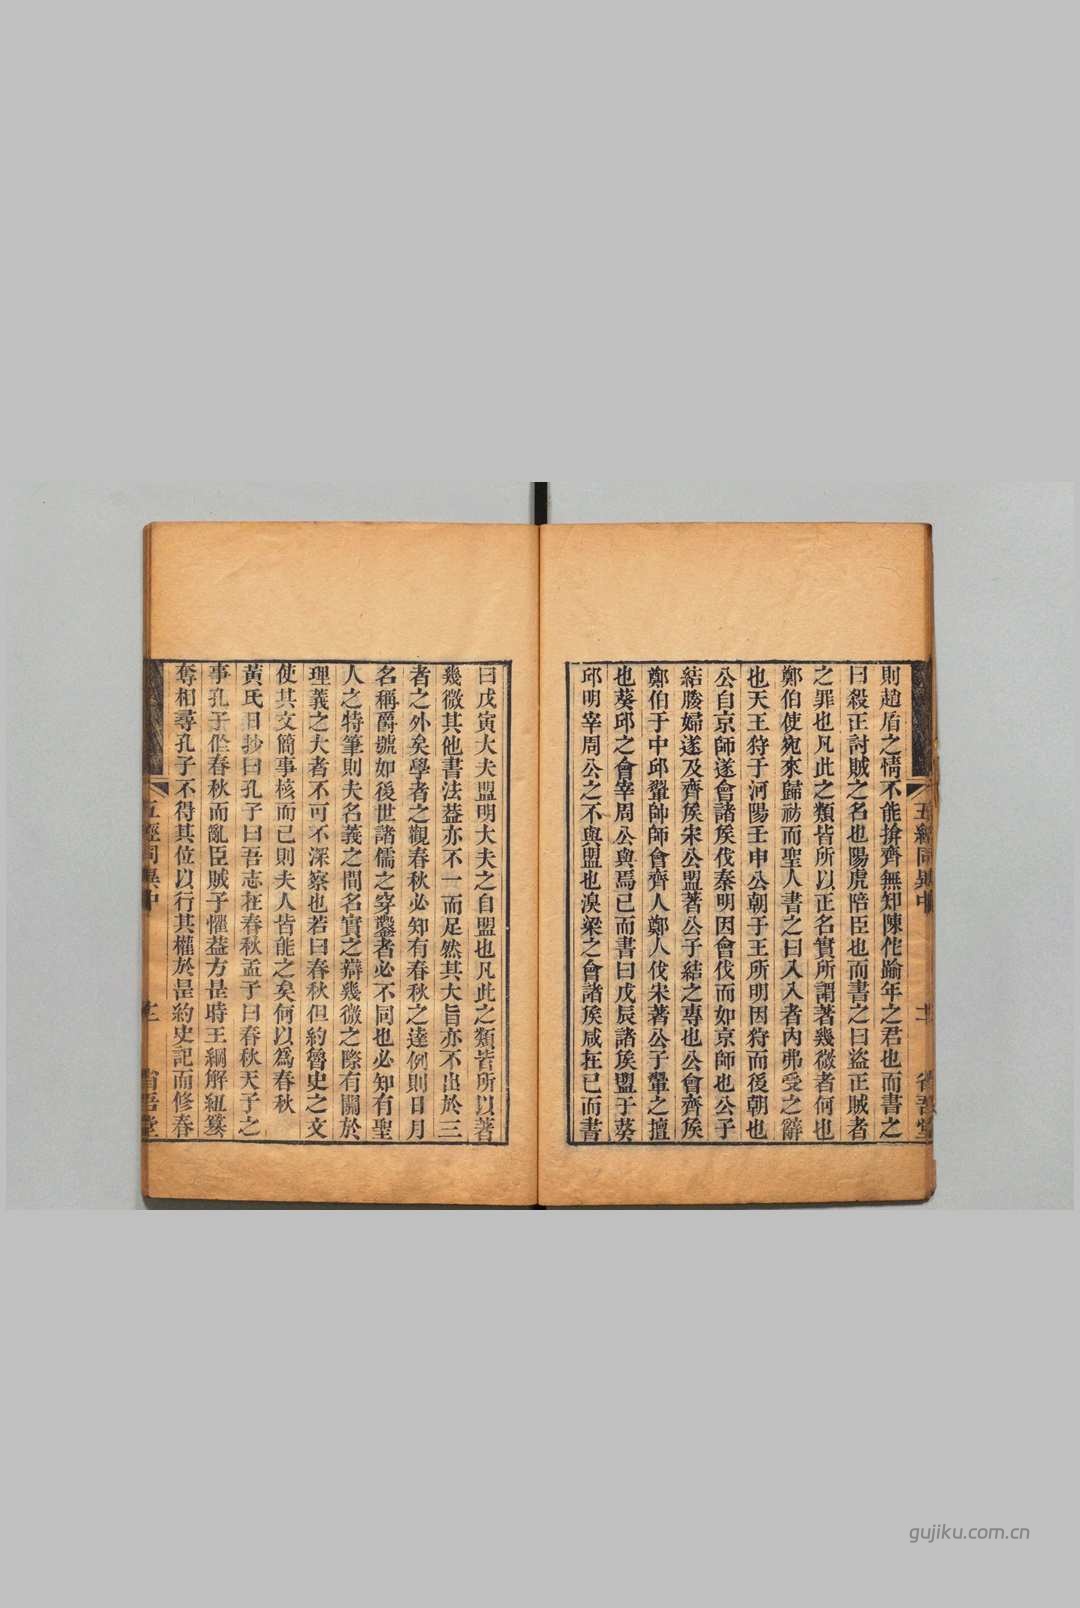 則趙盾之情不能揜齊無知陳佗踰年之君也而書之
曰殺正討賊之名也陽虎陪臣也而書之曰盜正賊者
之罪也凡此之類皆所以正名實所謂著幾微者何也
鄭伯使宛來歸祊而聖人書之曰入入者內弗受之辭
也天王狩于河陽壬申公朝于王所明因狩而後朝也
公自京師遂會諸矦伐秦明因會伐而如京師也公子
結媵婦遂及齊矦宋公盟著公子結之專也公會齊矦
鄭伯于中邱翬帥師會齊人鄭人伐宋著公子翬之擅
也葵邱之會宰周公與焉已而書曰戊辰諸矦盟于葵
邱明宰周公之不與盟也湨梁之會諸矦咸在已而書
曰戊寅大夫盟明大夫之自盟也凡此之類皆所以著
幾微其他書法葢亦不一而足然其大旨亦不出於三
者之外矣學者之觀春秋必知有春秋之達例則日月
名稱爵號如後世諸儒之穿鑿者必不同也必知有聖
人之特筆則夫名義之間名實之辯幾微之際有關於
理義之大者不可不深察也若曰春秋但約魯史之文
使其文簡事核而已則夫人皆能之矣何以爲春秋
黃氏日抄曰孔子曰吾志在春秋孟子曰春秋天子之
事孔子作春秋而亂臣賊子懼葢方是時王綱解紐篡
奪相尋孔子不得其位以行其權於是約史記而修春
五經同異中
省吾堂